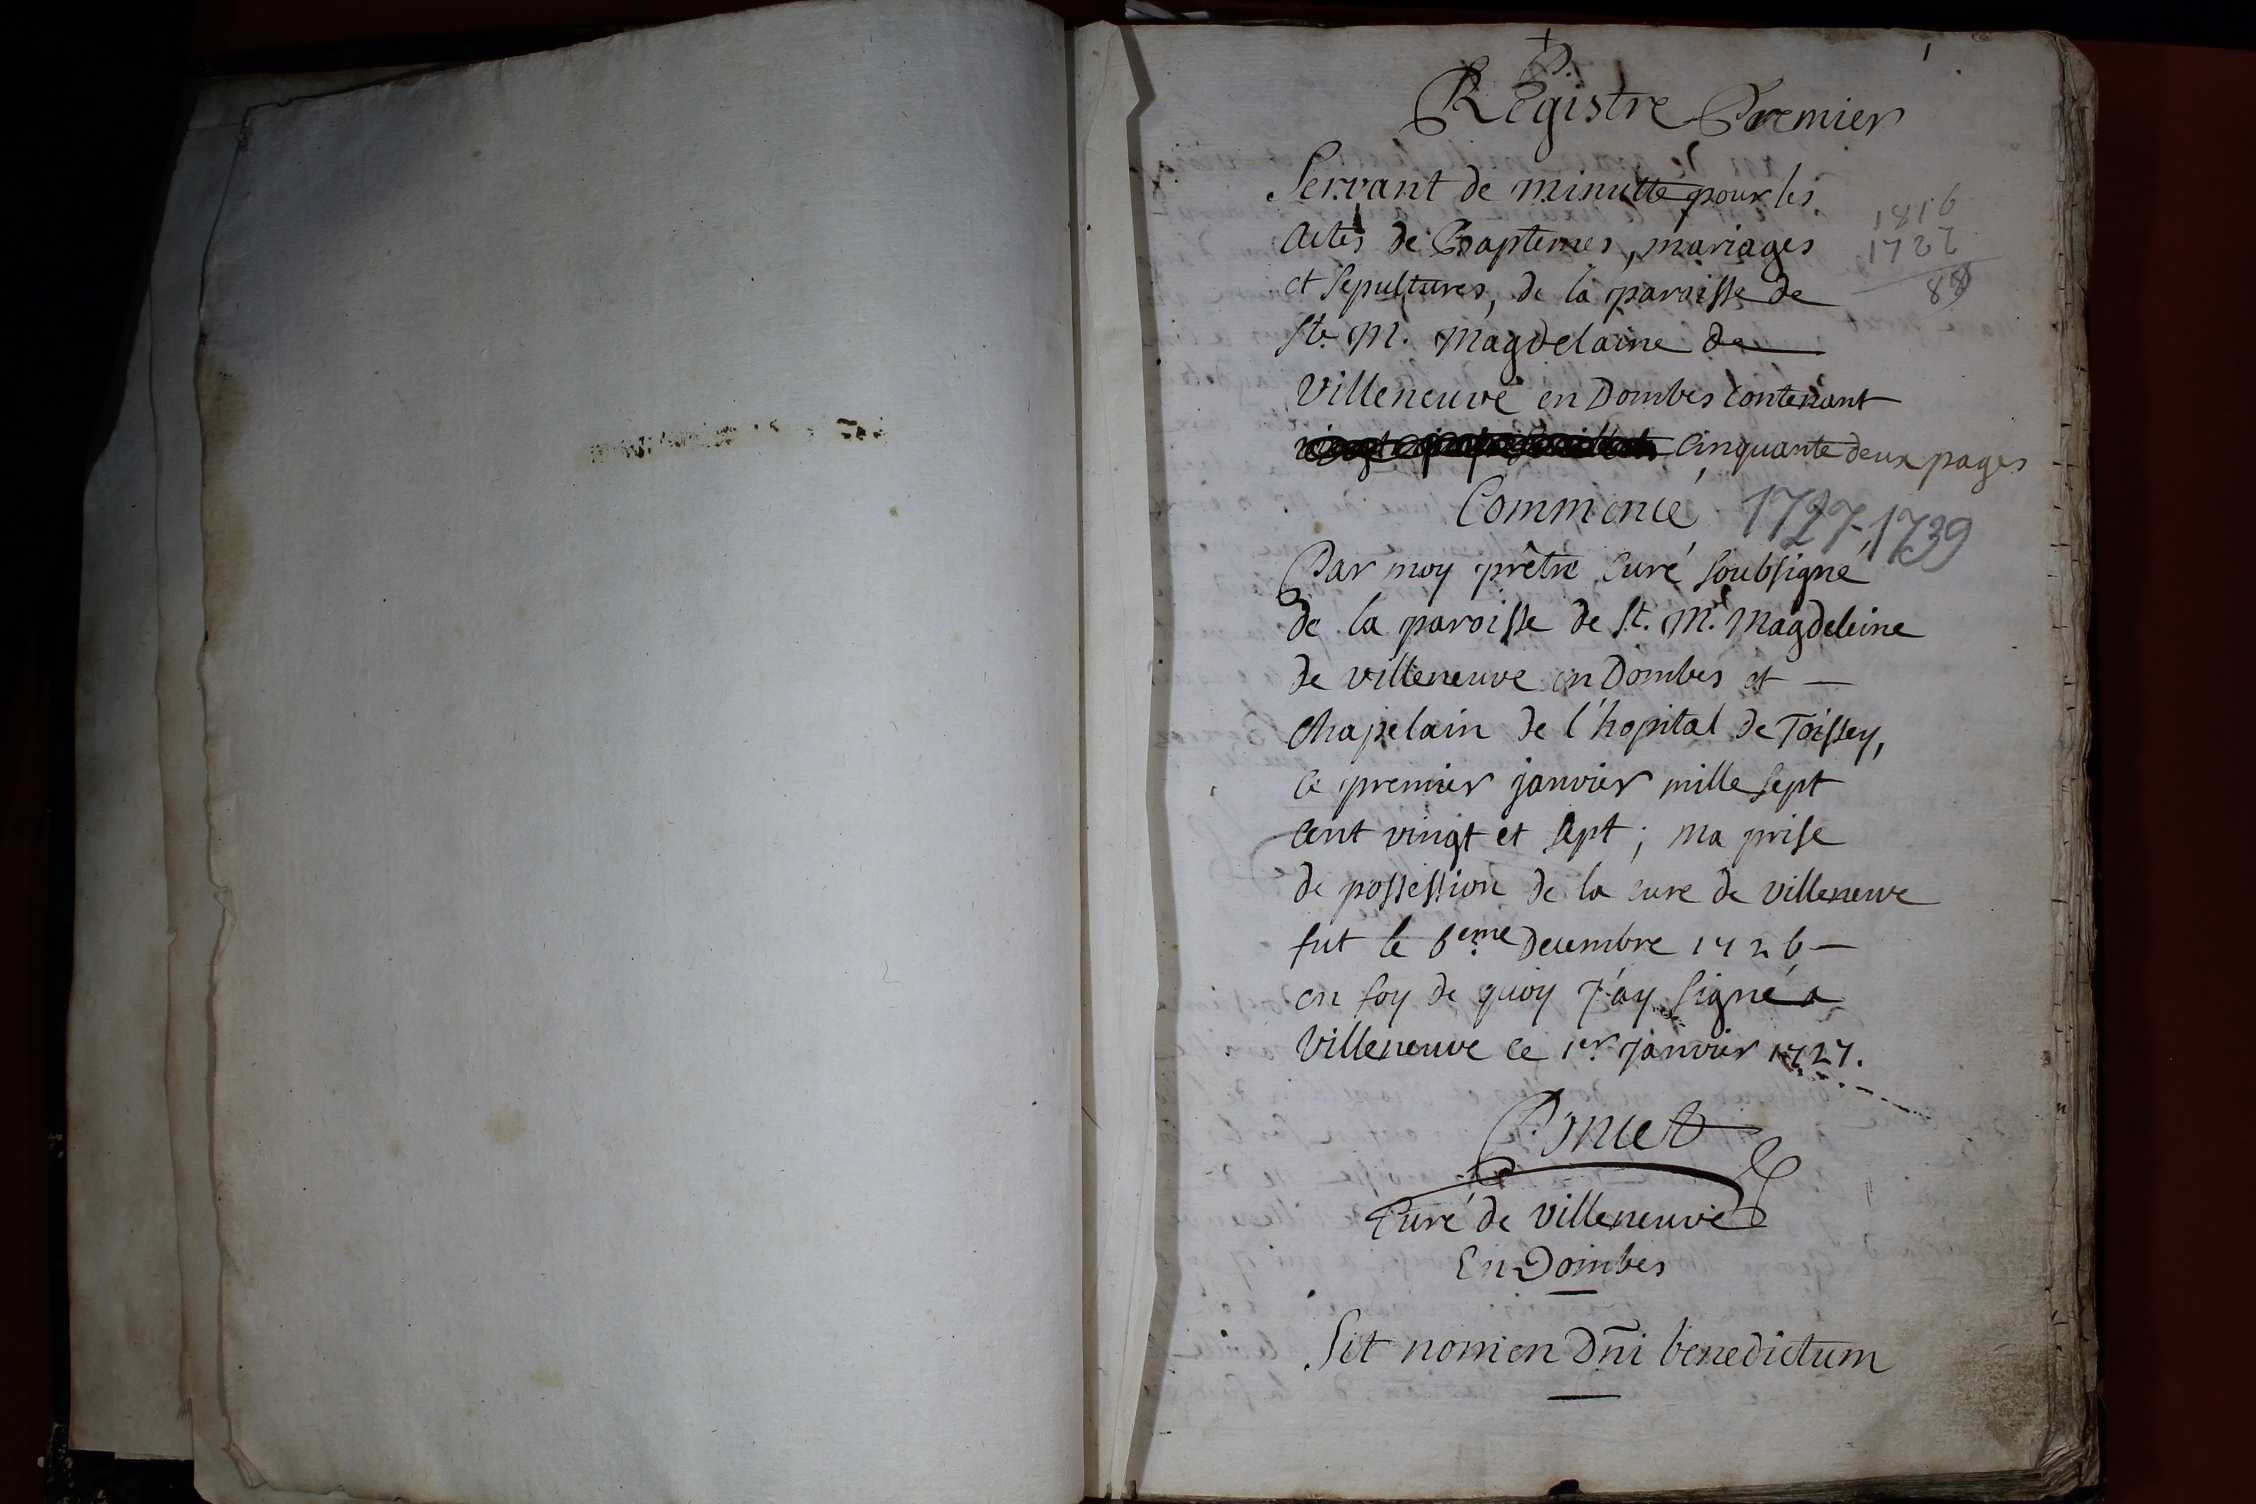 1
Registre Premier
Servant de minutte pour les
actes de Baptemes, mariages
et sepultures, de la paroisse de
Ste M. Magdelaine de
Villeneuve en Dombes contenant
cinquante deux pages
1816
1727
89
Commencé
1727-1739
Par moy prêtre curé soubsigné
de la paroisse de St. M. Magdeleine
de villeneuve en Dombes et
chapelain de l'hopital de Toissey,
ce premier janvier mille sept
cent vingt et sept; ma prise
de possession de la cure de villeneuve
fut le 6eme decembre 1726
en foy de quoy j'ay signé a
Villeneuve ce 1er janvier 1727.
Poncet
Curé de villeneuve
En Dombes
Sit nomen Dñi benedictum